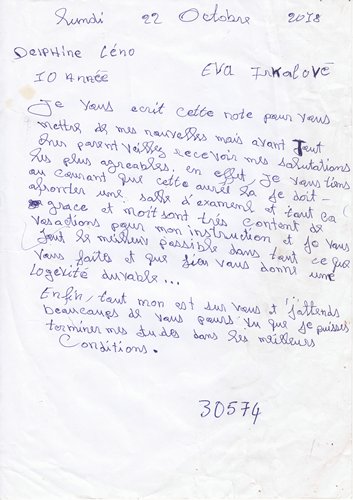 Lundi 22 Octobre 2018
Delphine Léno
10 Année Eva Irkalovē
Je vous ecrit cette note pour vous
mettre de mes nouvelles mais avant tout
cher parent veillez recevoir mes salutations
les plus agreables, en effet je vous tiens
au courant que cette année la je doit -
affronter une salle d'examen et tout ça
grace et moi sont très content de
vos actions pour mon instruction et je vous
tout le meilleur possible dans tout ce que
vous faites et que vous donne une
logévité durable...
Enfin, tout mon est sur vous et j'attends
beaucoups de vous pours vu que je puisses
terminer mes études dans les meilleurs
Conditions.
30574